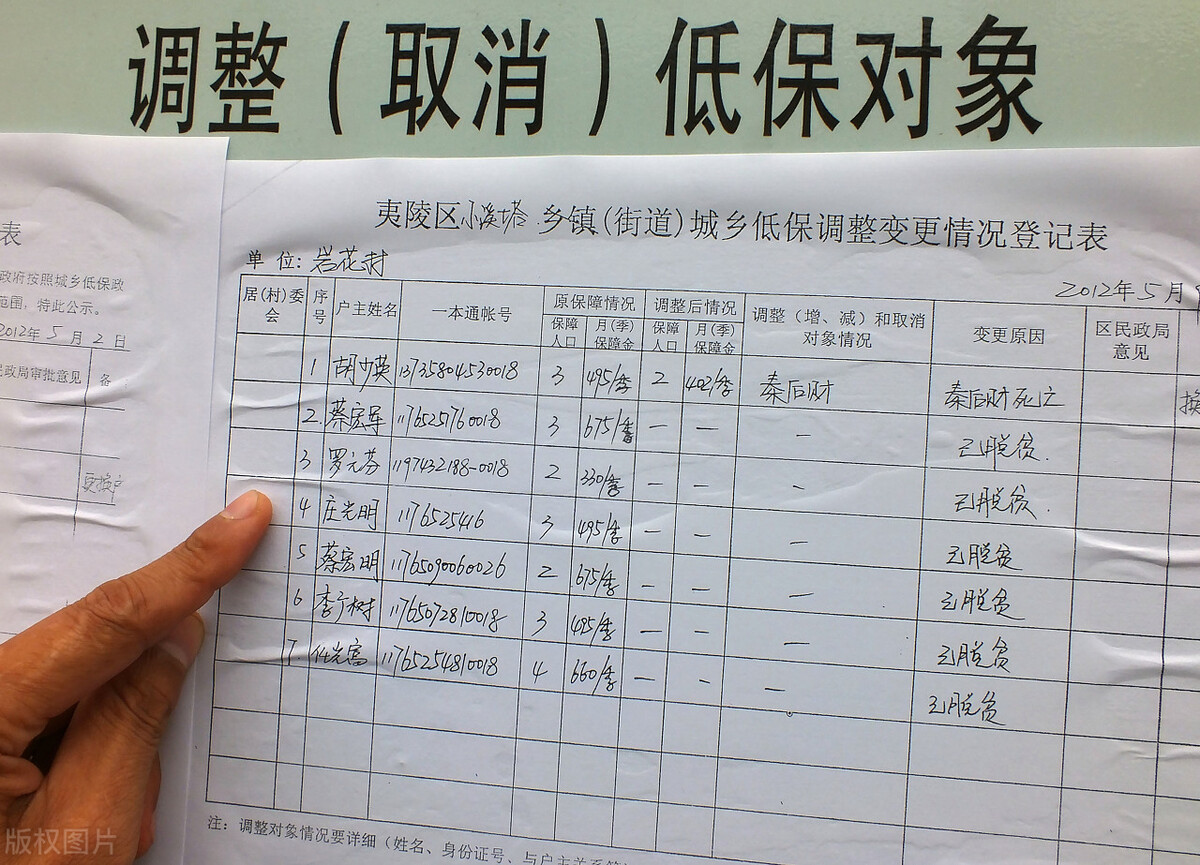 调整（取消）低保对象
表
政府按照城乡低保政
范围，特此公示。
2012年5月2日
民政局审批意见 备
更换户
夷陵区小溪塔乡镇(街道)城乡低保调整变更情况登记表
单 位：岩花村
2012年5月
居(村)委会 序号 户主姓名 一本通帐号 原保障情况 调整后情况 调整（增、减）和取消对象情况 变更原因 区民政局意见
保障人口 月(季)保障金 保障人口 月(季)保障金
1 胡少英 13735804530018 3 495/季 2 402/季 秦后财 秦后财死亡
2. 蔡宏军 11765251760018 3 675/季 — — — 已脱贫.
3 罗元芬 1197432188-0018 2 330/季 — — — 已脱贫.
4 庄光明 1176525416 3 495/季 — — — 已脱贫
5 蔡宏明 11765090060026 2 675/季 — — — 已脱贫
6 李广树 11765072810018 3 495/季 — — — 已脱贫
7. 任光富 11765254810018 4 660/季 — — — 已脱贫
注：调整对象情况要详细（姓名、身份证号、与户主关系等
版权图片